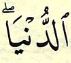 الدُّنْيَا ۖ